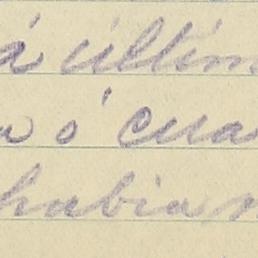 á últim
a ó cua
habian